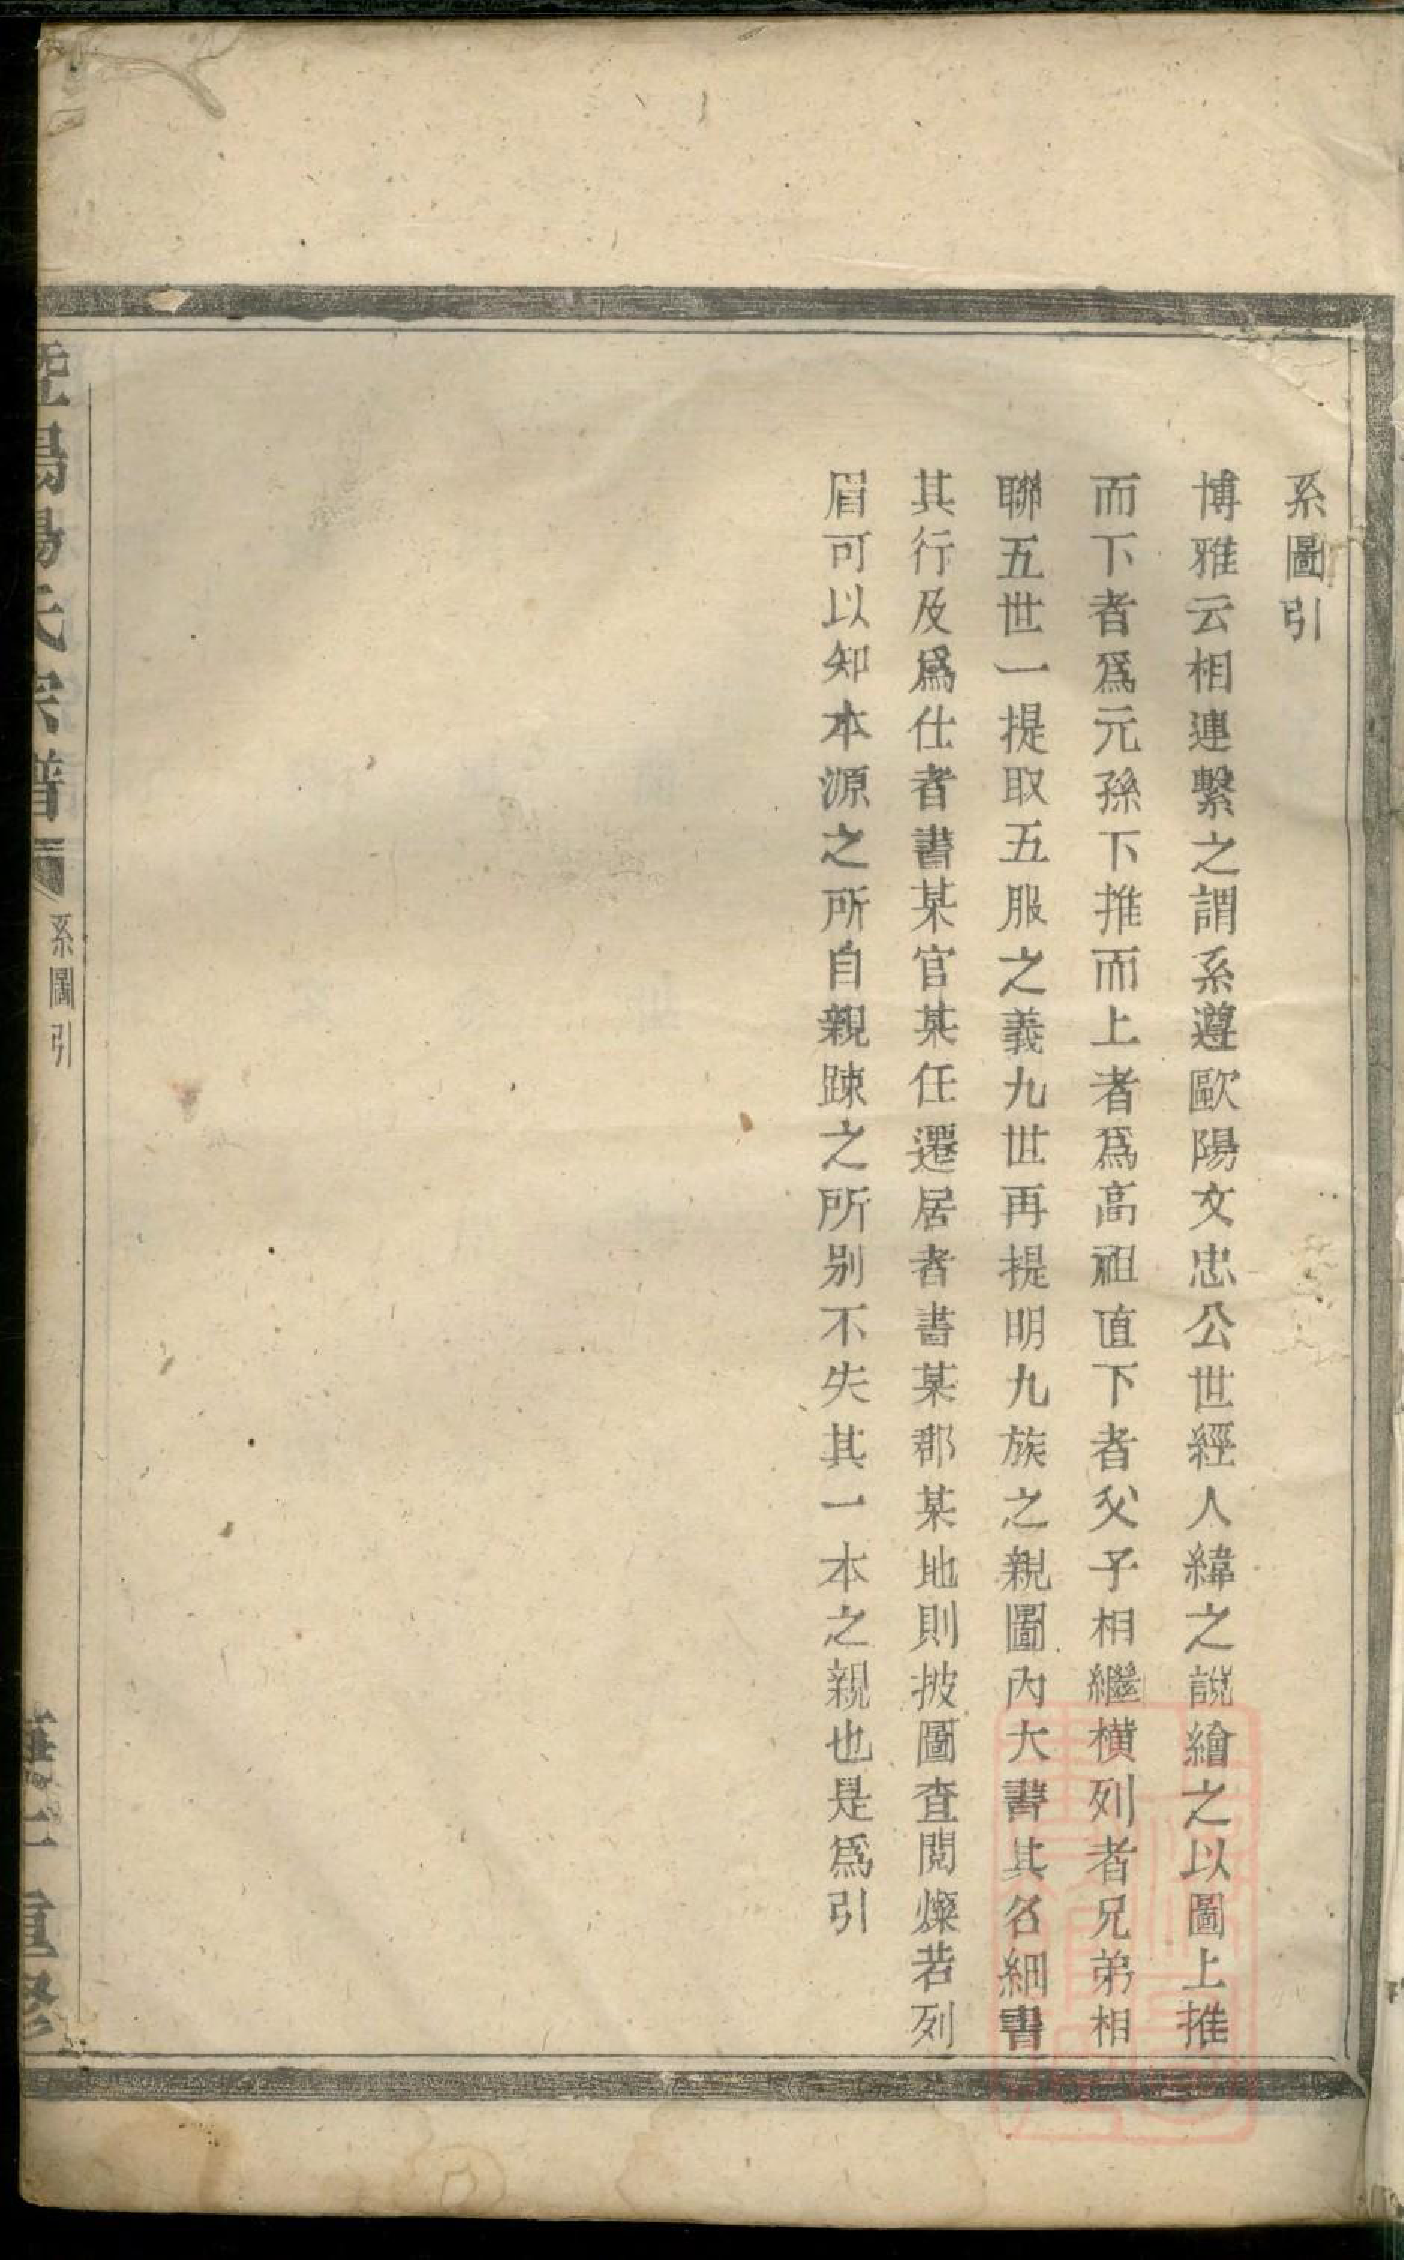 系圖引
博雅云相連繫之謂系遵歐陽文忠公世經人緯之說繪之以圖上推
而下者爲元孫下推而上者爲高祖直下者父子相繼橫列者兄弟相
聯五世一提取五服之義九世再提明九族之親圖內大書其名細書
其行及爲仕者書某官某任遷居者書某郡某地則披圖查閱燦若列
眉可以知本源之所自親踈之所别不失其一本之親也是爲引
氏宗譜
系圖引
重修